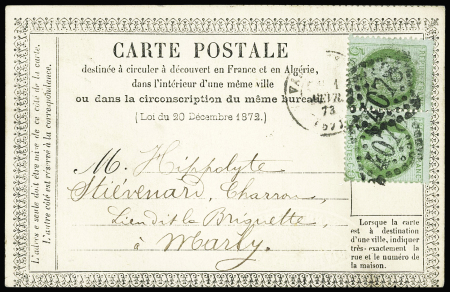 CARTE POSTALE
destinée à circuler à découvert en France et en Algérie,
dans l'intérieur d'une même ville
ou dans la circonscription du même bureau
(Loi du 20 Décembre 1872.)
L'adresse seule doit être mise de ce côté de la carte.
L'autre côté est réservé à la correspondance.
73
M. Hippolyte
Stiévenard, Charron,
Lieudit la Briquette,
à Marly.
Lorsque la carte
est à destination
d'une ville, indiquer
très-exactement la
rue et le numéro de
la maison.